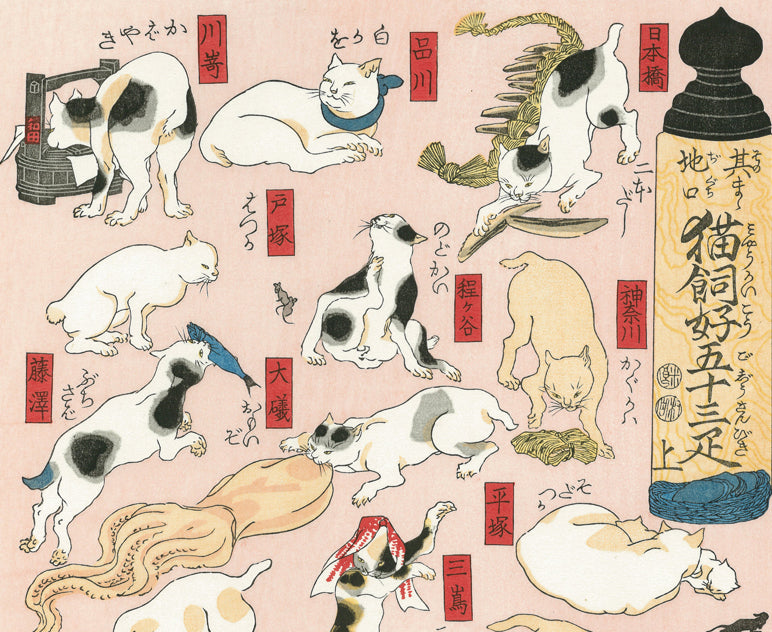 其まゝ
そのまゝ
地口
ぢぐち
猫飼好五十三疋
上
日本橋
二本だし
品川
白かを
川嵜
かばやき
神奈川
かぐかハ
程ヶ谷
のどかい
戸塚
はつか
平塚
そだつか
大礒
おもいぞ
藤澤
ぶちさば
三嶌